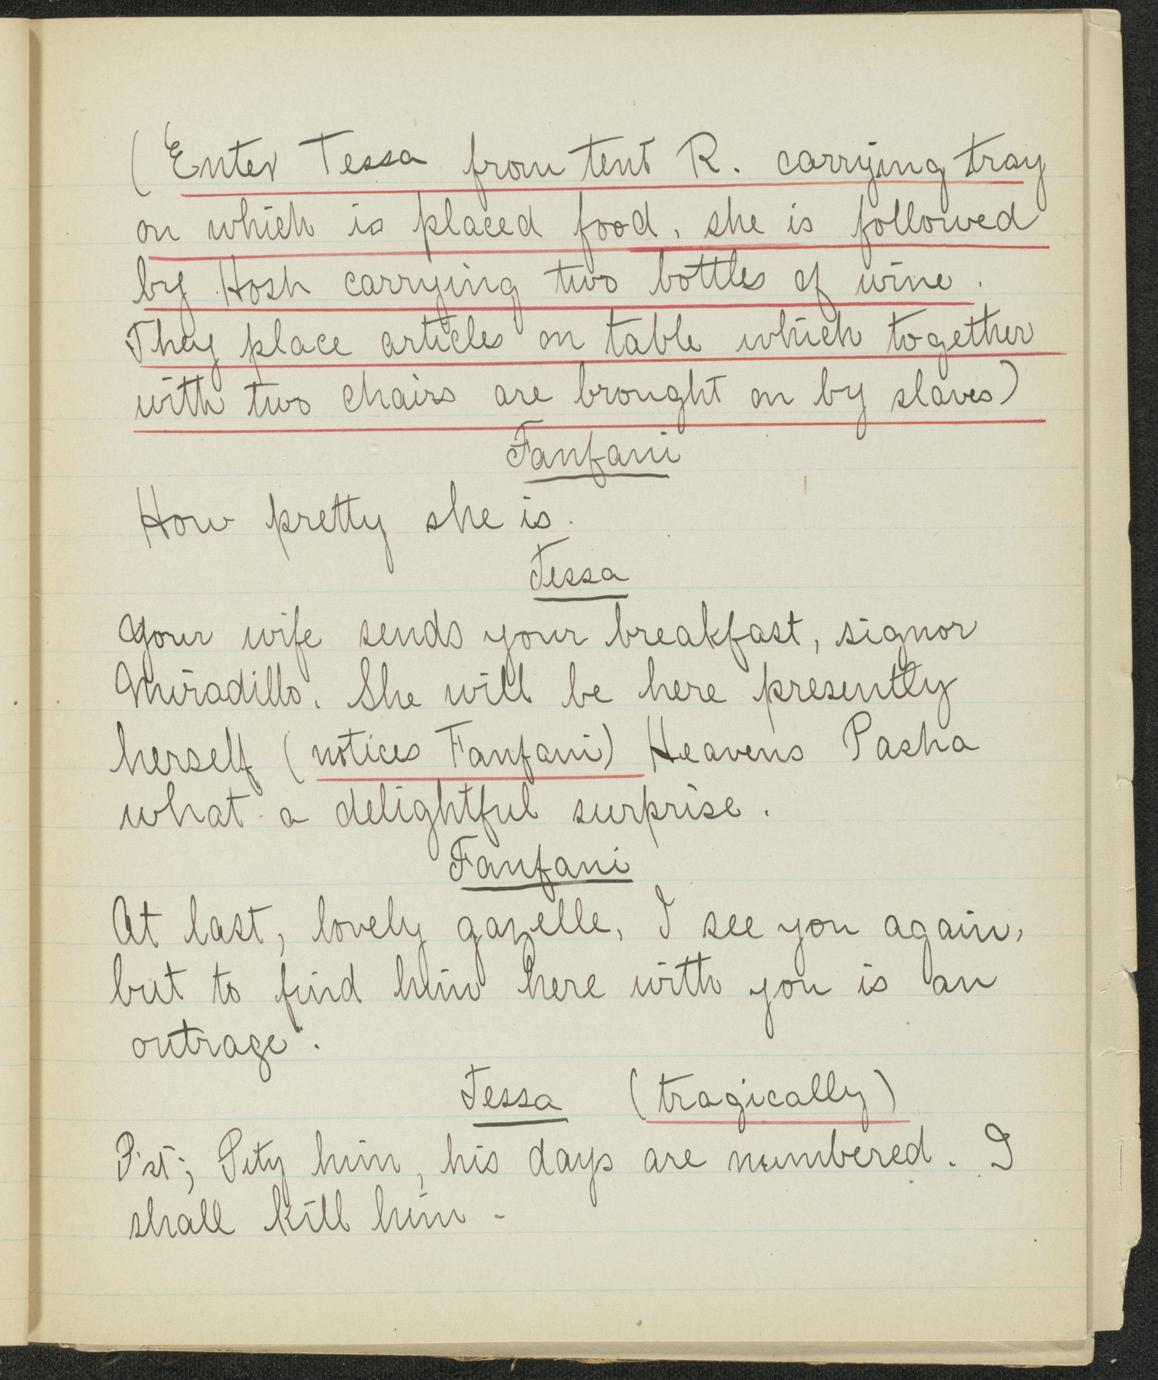 (Enter Tessa from tent R. carrying tray
on which is placed food, she is followed
by Hosh carrying two bottles of wine.
They place articles on table which together
with two chairs are brought on by slaves)
Fanfani
How pretty she is.
Tessa
Your wife sends your breakfast, signor
Miradillo. She will be here presently
herself (notices Fanfani) Heavens Pasha
what a delightful surprise.
Fanfani
At last, lovely gazelle, I see you again,
but to find him here with you is an
outrage.
Tessa (tragically)
P'st; Pity him, his days are numbered. I
shall kill him -